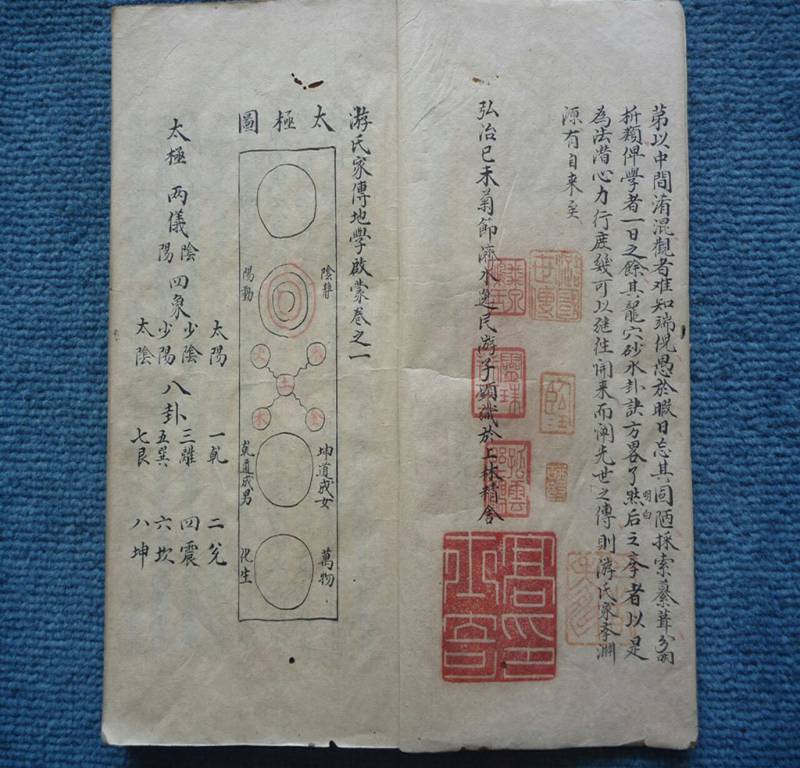 第以中間淆混觀者难知端倪愚於暇日忘其固陋採索纂葺分门
析類俾學者一日之餘其龍穴砂水卦訣方畧了然明白后之孝者以是
為法潜心力行庶幾可以继往開来而闸先世之傳則游氏家孝渊
源有自来矣
弘治己未菊節濟水逸民游子顕識於上林精舍
游氏家傳地學啟蒙卷之一
太極圖
陰静
陽動
火
水
土
木
金
坤道成女
乾道成男
萬物
化生
太極 两儀 陰 陽 四象 太陽 少陰 少陽 太陰 八卦 一乾 二兌 三離 四震 五巽 六坎 七艮 八坤